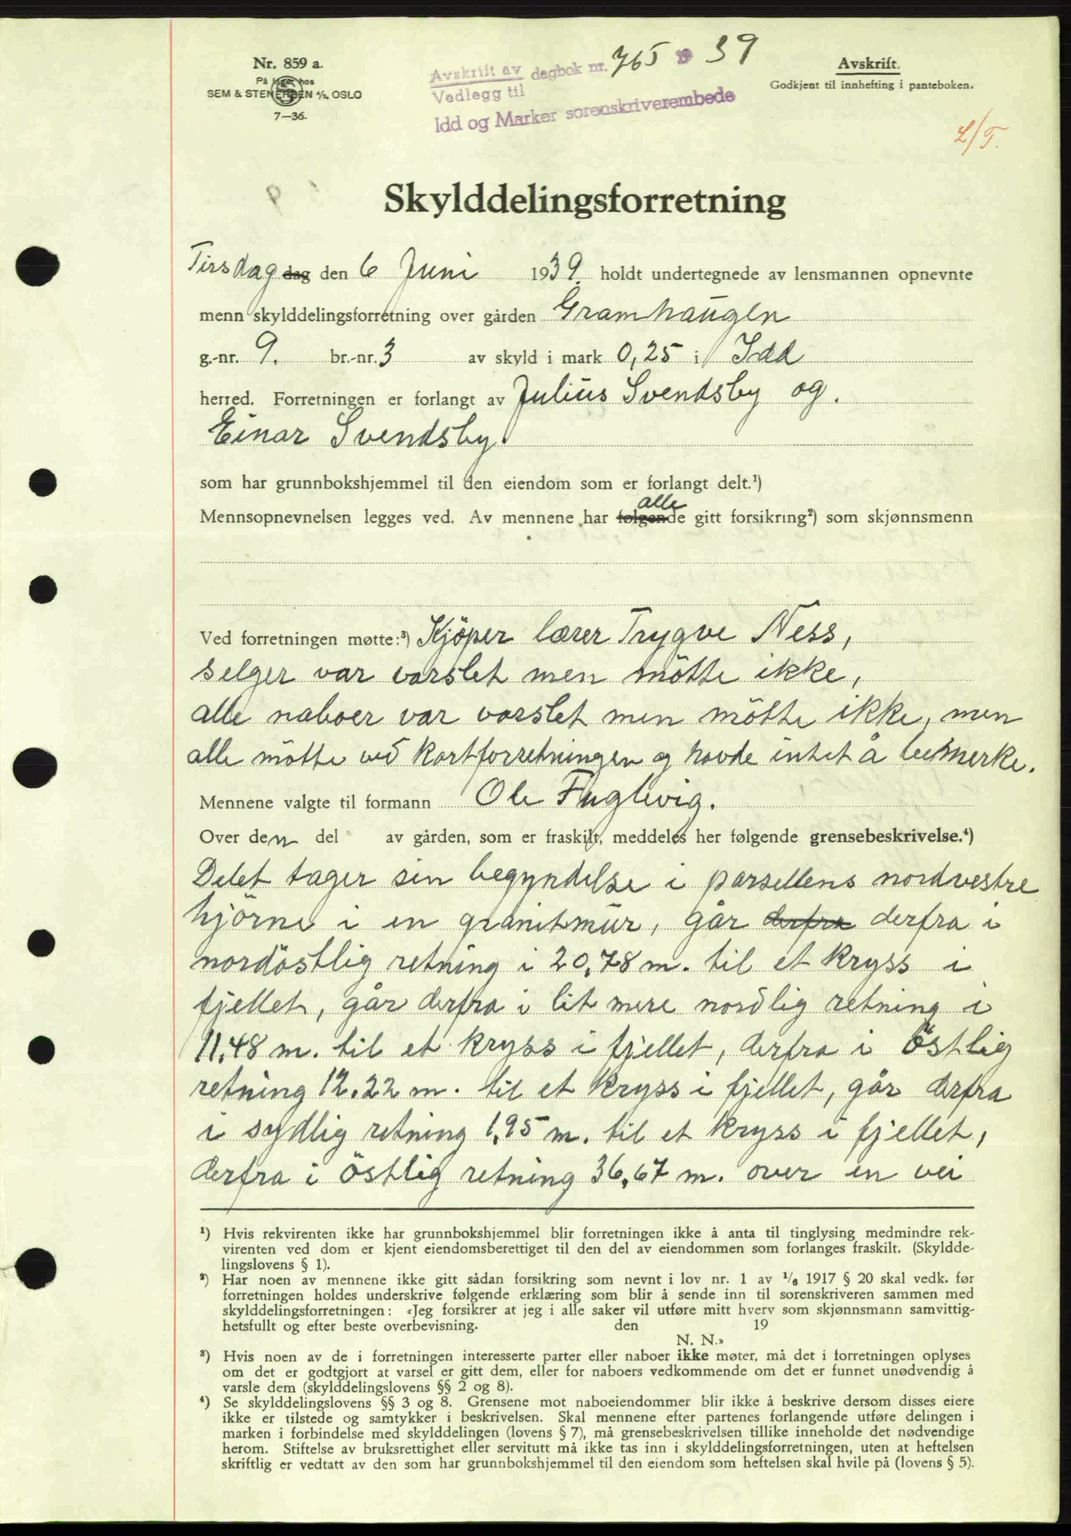 Nr. 859 a.
På lager hos
SEM & STENERSEN A/S, OSLO
7—36.
Avskrift av dagbok nr. 765 1939
Vedlegg til
Idd og Marker sorenskriverembede
Avskrift.
Godkjent til innhefting i panteboken.
L/T.
Skylddelingsforretning
Tirsdag dag den 6 Juni 1939. holdt undertegnede av lensmannen opnevnte
menn skylddelingsforretning over gården Gramhaugen
g.-nr. 9. br.-nr. 3 av skyld i mark 0,25 i Idd
herred. Forretningen er forlangt av Julius Svendsby og.
Einar Svendsby.
som har grunnbokshjemmel til den eiendom som er forlangt delt.¹)
alle
Mennsopnevnelsen legges ved. Av mennene har følgende gitt forsikring²) som skjønnsmenn
Ved forretningen møtte:³) Kjöper lærer Trygve Ness,
selger var varslet men mötte ikke,
alle naboer var varslet men mötte ikke, men
alle mötte ved kartforretningen og havde intet å bemerke.
Mennene valgte til formann Ole Fuglevig.
Over den del av gården, som er fraskilt, meddeles her følgende grensebeskrivelse.⁴)
Delet tager sin begyndelse i parsellens nordvestre
hjörne i en granitmur, går derfra derfra i
nordöstlig retning i 20,78 m. til et kryss i
fjellet, går derfra i lit mere nordlig retning i
11,48 m. til et kryss i fjellet, derfra i östlig
retning 12.22 m. til et kryss i fjellet, går derfra
i sydlig retning 1,95 m. til et kryss i fjellet,
derfra i östlig retning 36,67 m. over en vei
¹) Hvis rekvirenten ikke har grunnbokshjemmel blir forretningen ikke å anta til tinglysing medmindre rek-
virenten ved dom er kjent eiendomsberettiget til den del av eiendommen som forlanges fraskilt. (Skyldde-
lingslovens § 1).
²) Har noen av mennene ikke gitt sådan forsikring som nevnt i lov nr. 1 av 1/6 1917 § 20 skal vedk. før
forretningen holdes underskrive følgende erklæring som blir å sende inn til sorenskriveren sammen med
skylddelingsforretningen: «Jeg forsikrer at jeg i alle saker vil utføre mitt hverv som skjønnsmann samvittig-
hetsfullt og efter beste overbevisning. den 19
N. N.»
³) Hvis noen av de i forretningen interesserte parter eller naboer ikke møter, må det i forretningen oplyses
om det er godtgjort at varsel er gitt dem, eller for naboers vedkommende om det er funnet unødvendig å
varsle dem (skylddelingslovens §§ 2 og 8).
⁴) Se skylddelingslovens §§ 3 og 8. Grensene mot naboeiendommer blir ikke å beskrive dersom disses eiere
ikke er tilstede og samtykker i beskrivelsen. Skal mennene efter partenes forlangende utføre delingen i
marken i forbindelse med skylddelingen (lovens § 7), må grensebeskrivelsen tillike inneholde det nødvendige
herom. Stiftelse av bruksrettighet eller servitutt må ikke tas inn i skylddelingsforretningen, uten at heftelsen
skriftlig er vedtatt av den som har grunnbokshjemmel til den eiendom som heftelsen skal hvile på (lovens § 5).